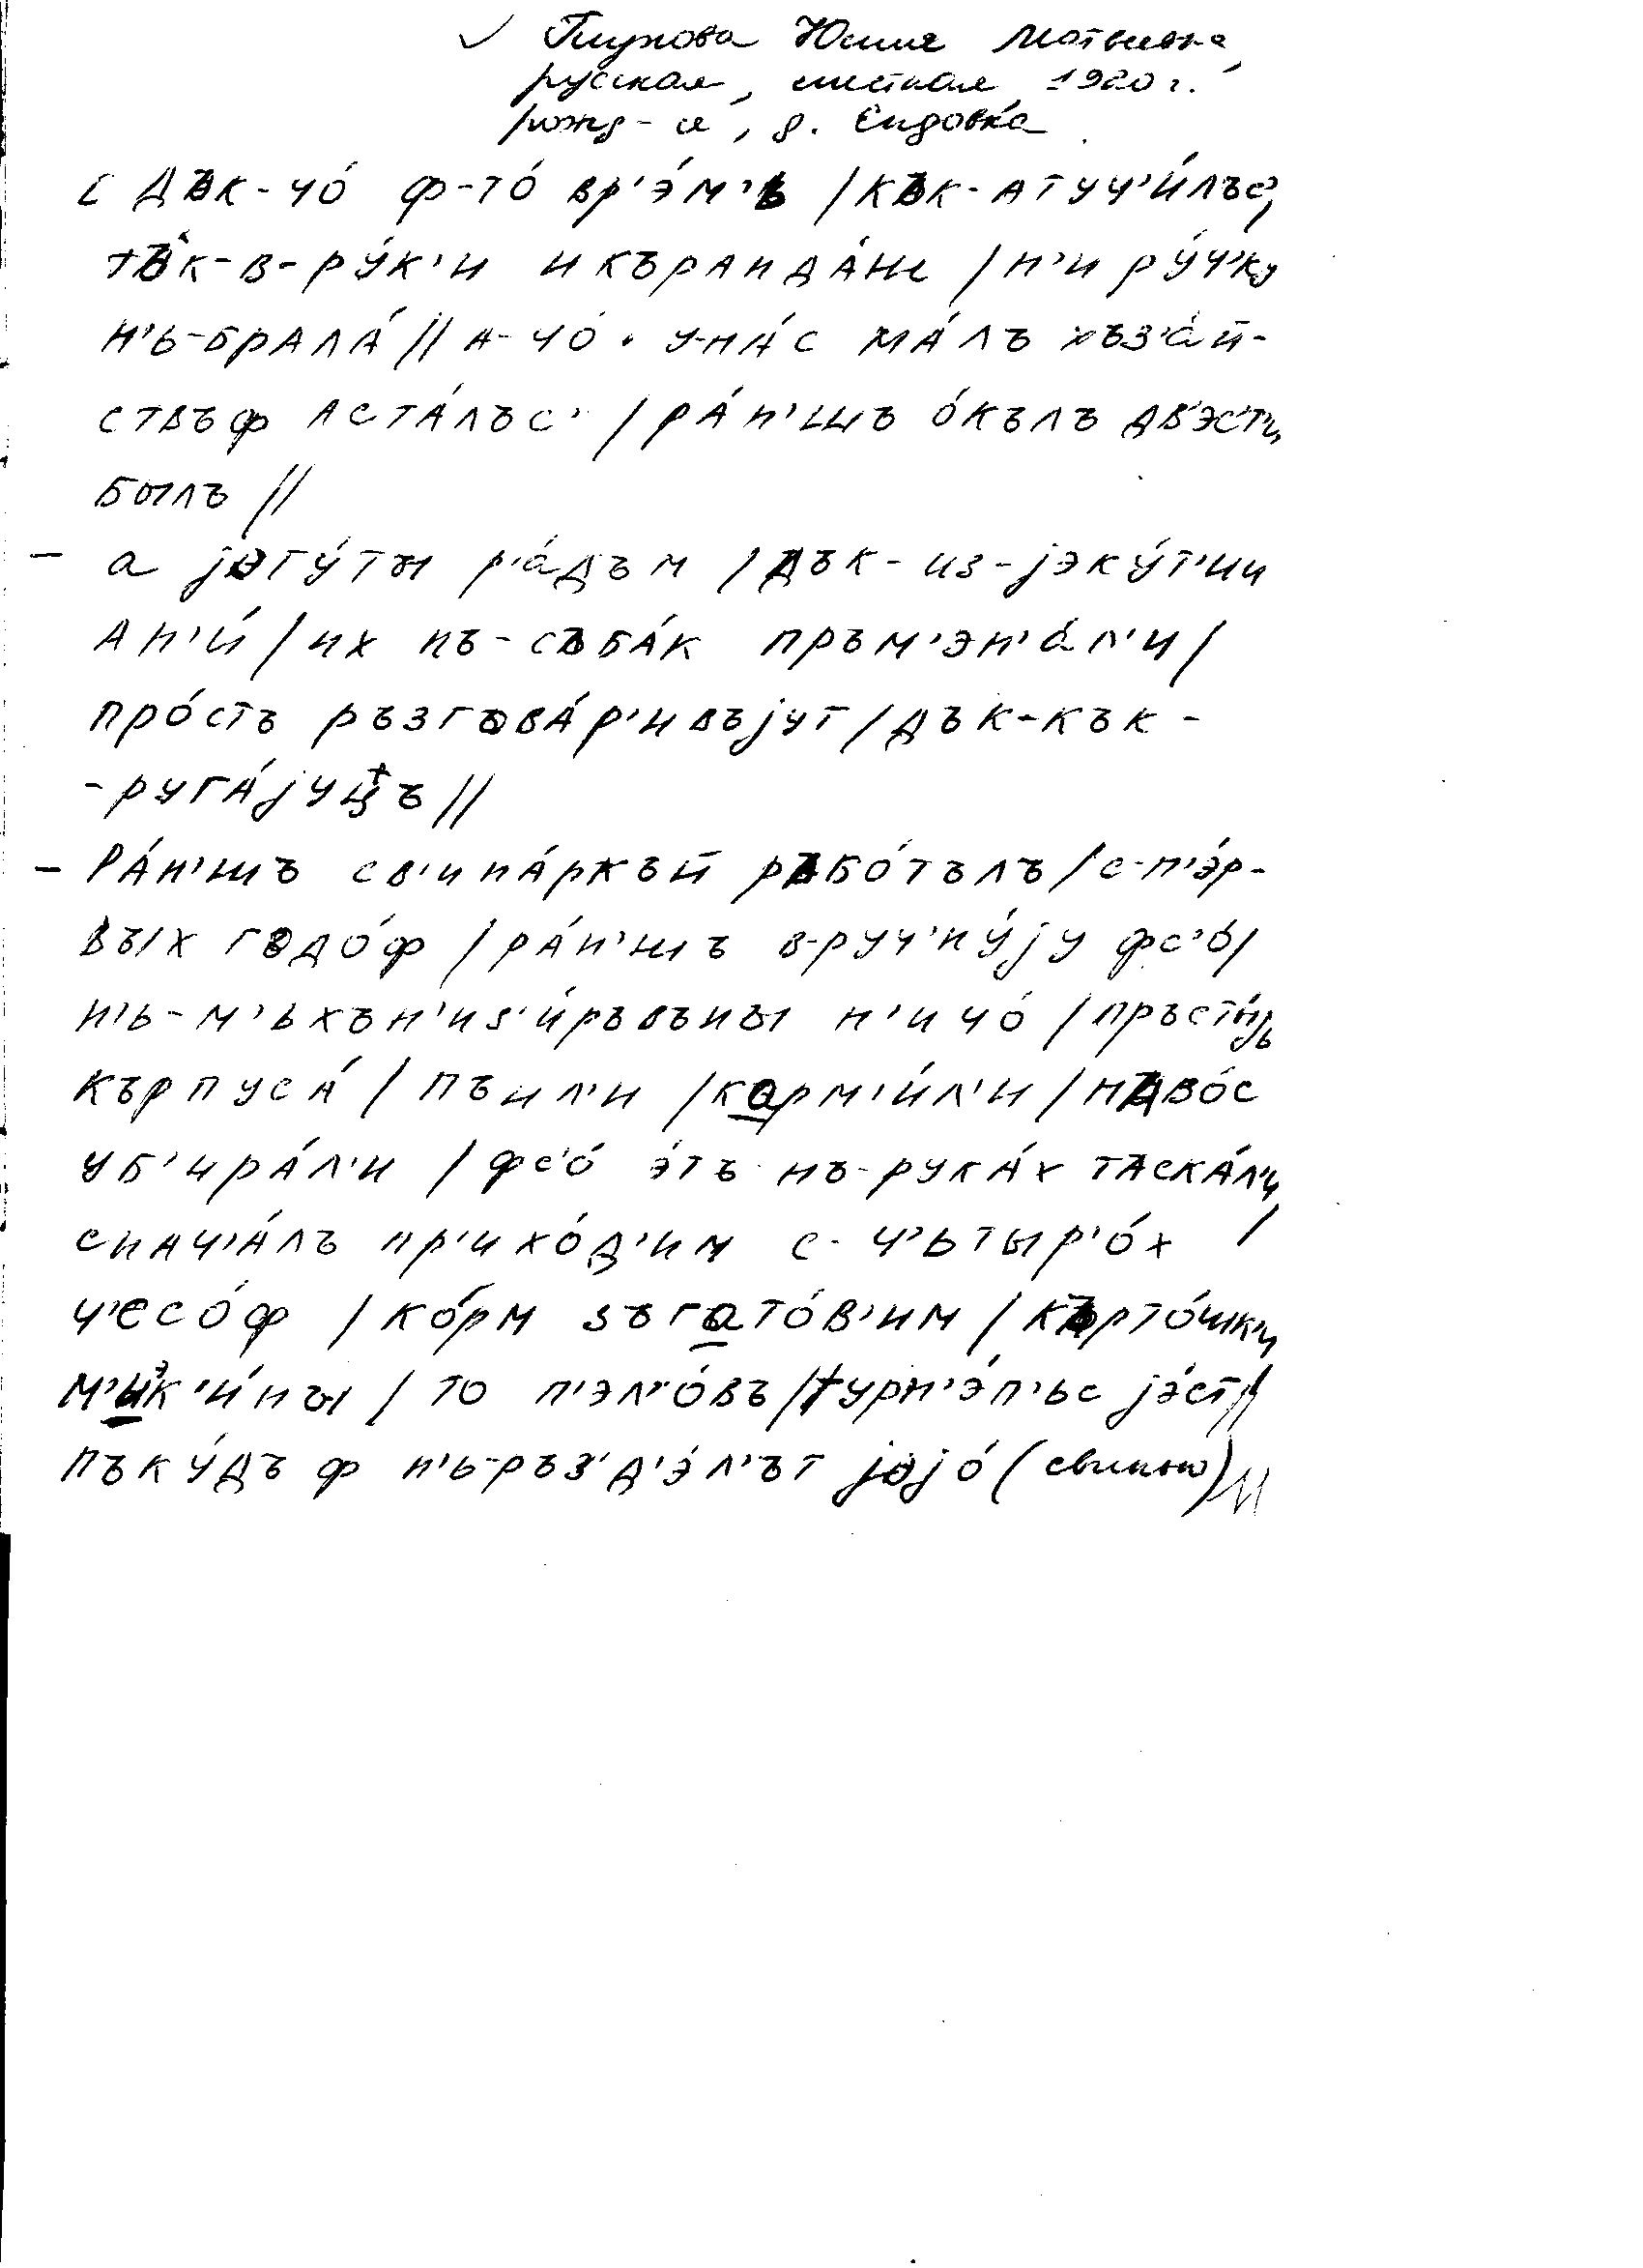 ✓ Глухова Юлия Матвеевна,
русская, местная 1920 г.
рожд-я, д. Ендовка
[ дък-чо́ ф-то́ вр'э́м'ь / кък-атуч'и́лъс',
тък-в-ру́к'и и къранда́ш / н'и ру́ч'ку
н'ь-брала́ // а-чо́ у-на́с ма́лъ хъз'а́й-
ствъф аста́лъс' / ра́н'шъ о́кълъ дв'эс'т'и
былъ //
– а jэгу́ты р'а́дъм / дък-из-jэку́т'ии
ан'и́ / их нъ-съба́к пръм'эн'а́л'и /
про́стъ ръзгова́р'ивъjут / дък-кък-
-руга́jуцъ //
– Ра́н'шъ св'ина́ркъй рабо́тълъ / с-п'э́р-
вых годо́ф / ра́н'шъ в-руч'ну́jу фс'о́ /
н'ь-м'ьхън'из'и́ръвъны н'ичо́ / просты́jь
кърпуса́ / пъил'и / корм'и́л'и / наво́с
уб'ира́л'и / фс'о́ э́тъ нъ-рука́х таска́л'и /
снач'а́лъ пр'ихо́д'им с-ч'ьтыр'о́х
ч'есо́ф / ко́рм зъгато́в'им / карто́шк'и
м'ик'и́ны / то п'эл'о́въ / турн'э́п'ьс jэ́ст' //
пъку́дъ ф н'ь-ръз'д'э́л'ът jоjо́ (свинью) //